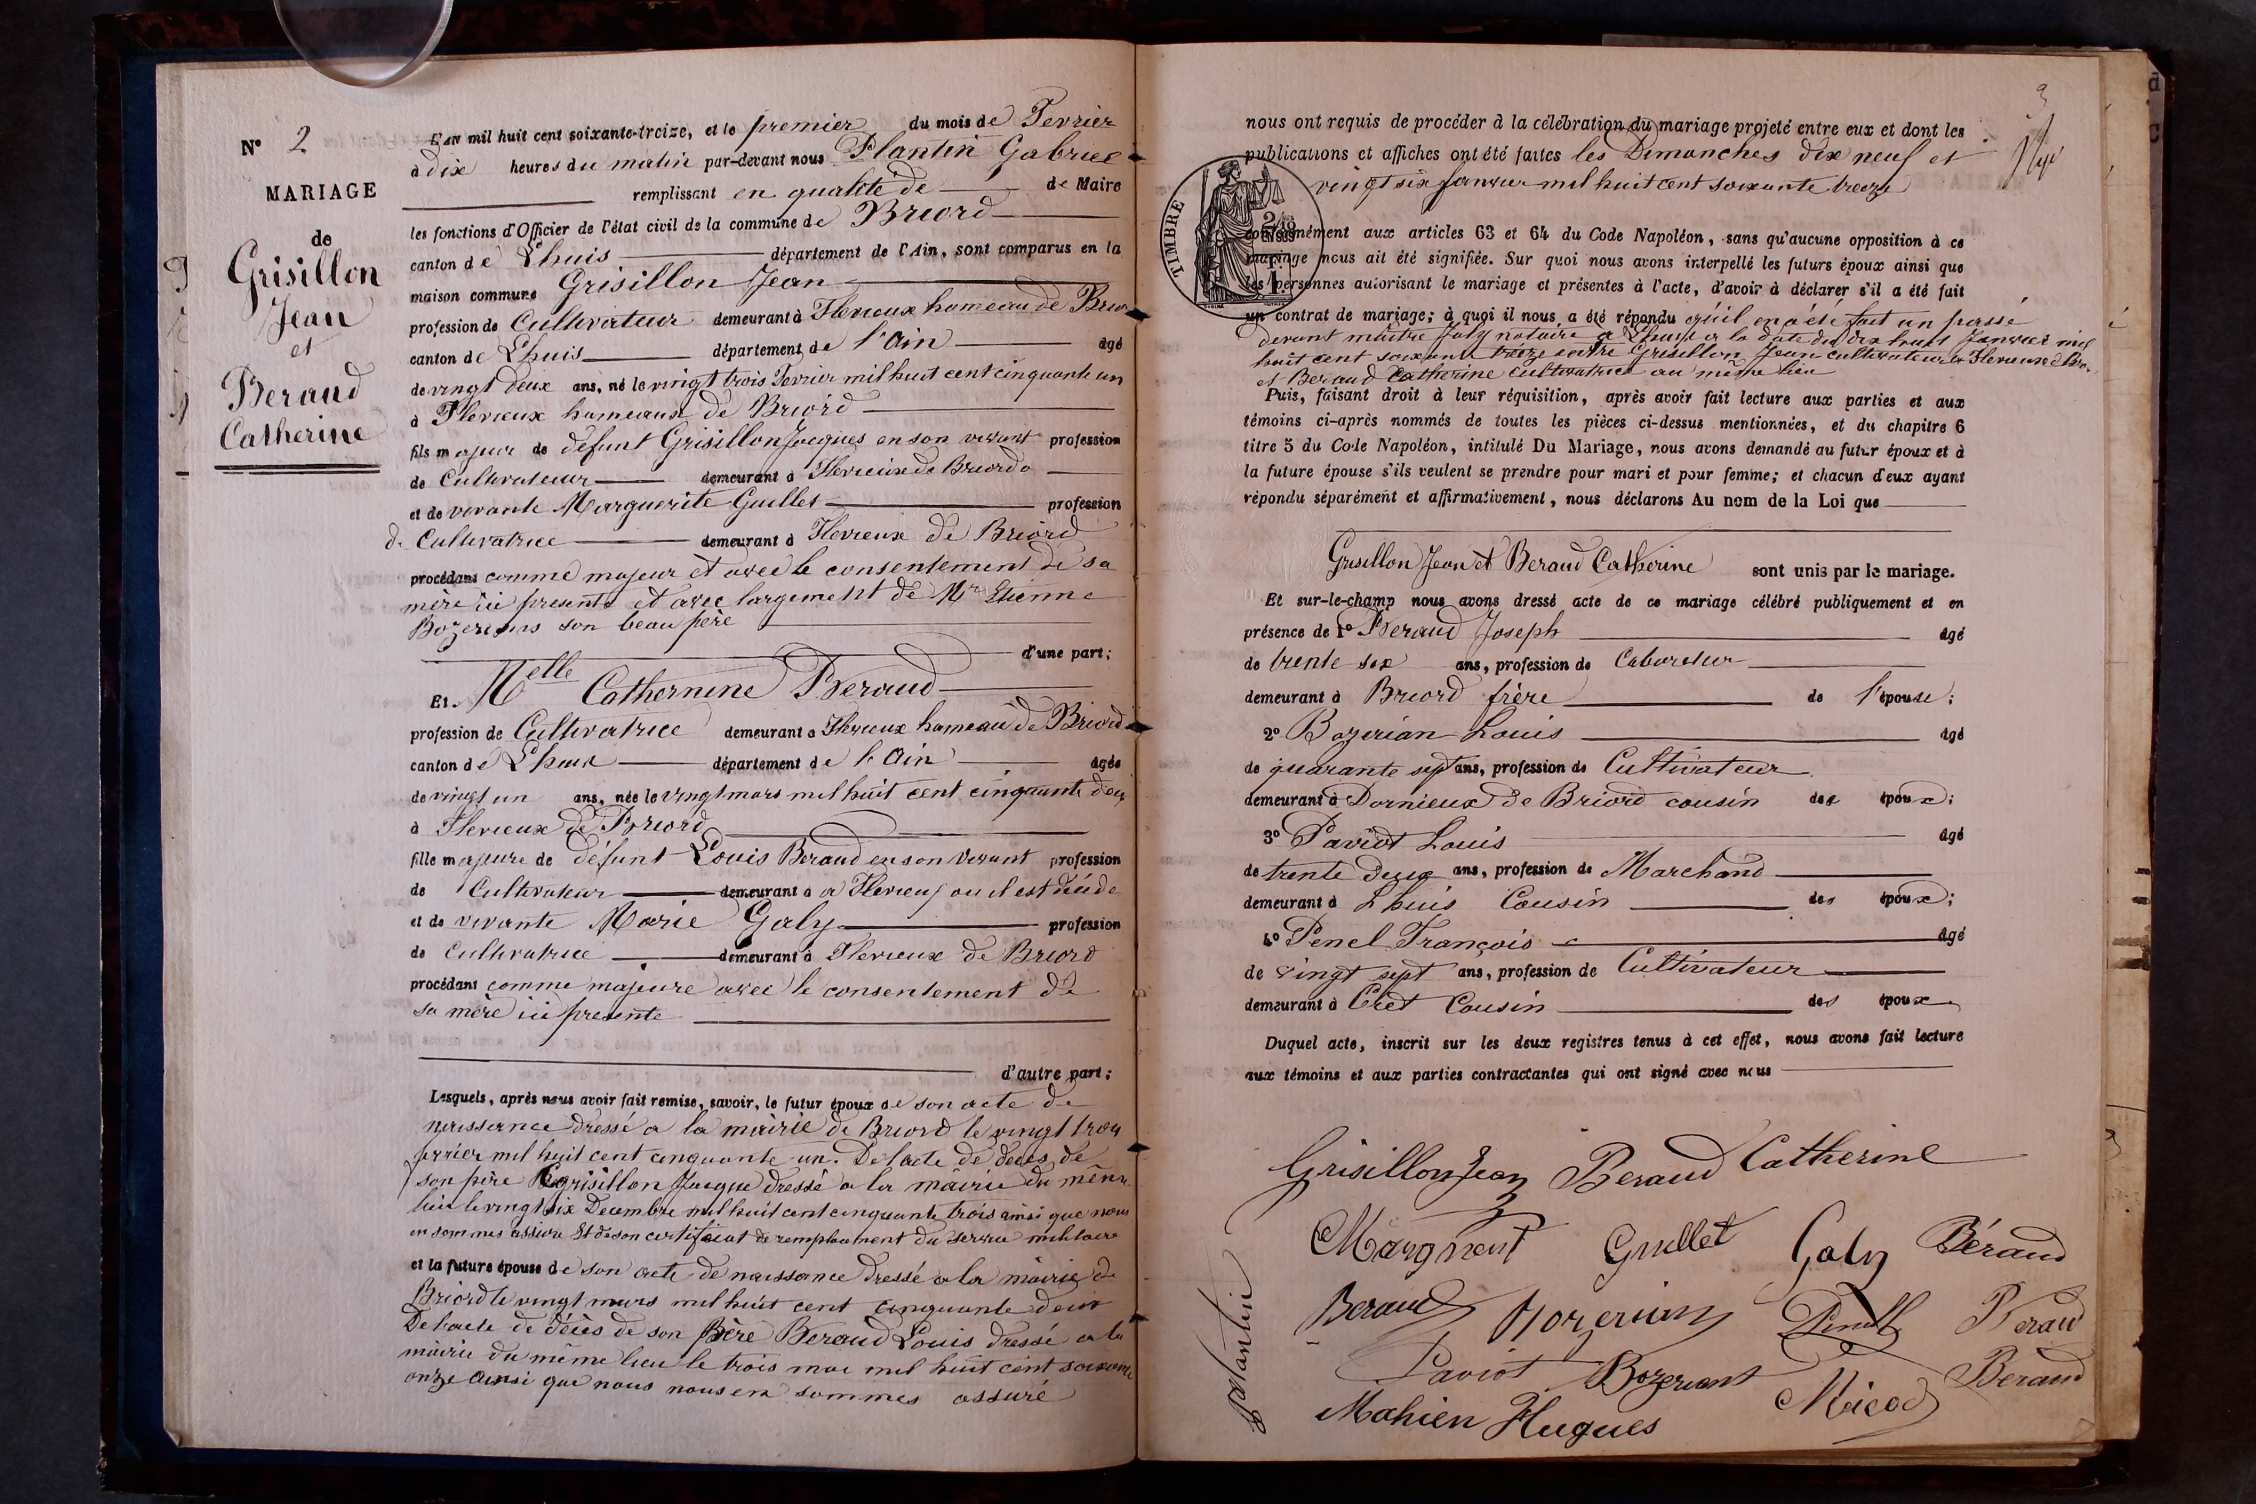 N° 2
MARIAGE
de
Grisillon
Jean
et
Beraud
Catherine
L'AN mil huit cent soixante-treize, et le premier du mois de Fevrier
à dix heures du matin par-devant nous Plantin Gabriel
remplissant en qualité de de Maire
les fonctions d'Officier de l'état civil de la commune de Briord
canton de Lhuis département de l'Ain, sont comparus en la
maison commune Grisillon Jean
profession de Cultivateur demeurant à Flevieux hameau de Brior
canton de Lhuis département de l'Ain âgé
de vingt deux ans, né le vingt trois Fevrier mil huit cent cinquante un
à Flevieux hameaux de Briord
fils majeur de défunt Grisillon Jacques en son vivant profession
de Cultivateur demeurant à Flevieux de Briord
et de vivante Marguerite Guillet profession
de Cultivatrice demeurant à Flevieux de Briord
procédant comme majeur et avec le consentement de sa
mère ici presente et avec largement de Mr Etienne
son beau père
d'une part;
Et Melle Cathernine Beraud
profession de Cultivatrice demeurant a Flevieux hameau de Briord
canton de Lhuis département de l'Ain âgée
de vingt un ans, née le vingt mars mil huit cent cinquante deux
à Flevieux de Briord
fille majeure de défunt Louis Beraud en son vivant profession
de Cultivateur demeurant à a Flevieux ou il est décédé
et de vivante Marie Galy profession
de Cultivatrice demeurant à Flevieux de Briord
procédant comme majeure avec le consentement de
sa mère ici presente
d'autre part;
Lesquels, après nous avoir fait remise, savoir, le futur époux de son acte de
naissance dressé a la mairie de Briord le vingt trois
fevrier mil huit cent cinquante un. De l'acte de deces de
son père Grisillon Jacque dressé a la mairie du même
lieu le vingt six Decembre mil huit cent cinquante trois ainsi que nous
en sommes assuré Et de son certificat de remplacement du service militaire
et la future épouse de son acte de naissance dressé a la mairie de
Briord le vingt mars mil huit cent cinquante deux
De l'acte de décès de son père Beraud Louis dressé a la
mairie du même lieu le trois mai mil huit cent soixante
onze ainsi que nous nous en sommes assuré
3
nous ont requis de procéder à la célébration du mariage projeté entre eux et dont les
publications et affiches ont été faites les Dimanches dix neuf et
vingt six Janvier mil huit cent soixante treize
TIMBRE
conformément aux articles 63 et 64 du Code Napoléon, sans qu'aucune opposition à ce
mariage nous ait été signifiée. Sur quoi nous avons interpellé les futurs époux ainsi que
les personnes autorisant le mariage et présentes à l'acte, d'avoir à déclarer s'il a été fait
un contrat de mariage; à quoi il nous a été répondu qu'il en a été fait un passé
devant maître Joly notaire a Lhuis a la date du dix huit Janvier mil
huit cent soixante treize entre Grisillon Jean cultivateur a Flevieux de Bri.
et Beraud Catherine Cultivatrice au même lieu
Puis, faisant droit à leur réquisition, après avoir fait lecture aux parties et aux
témoins ci-après nommés de toutes les pièces ci-dessus mentionnées, et du chapitre 6
titre 5 du Code Napoléon, intitulé Du Mariage, nous avons demandé au futur époux et à
la future épouse s'ils veulent se prendre pour mari et pour femme; et chacun d'eux ayant
répondu séparément et affirmativement, nous déclarons Au nom de la Loi que
Grisillon Jean et Beraud Catherine sont unis par le mariage.
Et sur-le-champ nous avons dressé acte de ce mariage célébré publiquement et en
présence de 1° Beraud Joseph âgé
de trente six ans, profession de Cabaretier
demeurant à Briord frère de l'épouse;
2° Bozerian Louis âgé
de quarante sept ans, profession de Cultivateur
demeurant à Dornieux de Briord cousin des époux;
3° Paviot Louis âgé
de trente deux ans, profession de Marchand
demeurant à Lhuis Cousin des époux;
4° Penel François âgé
de vingt sept ans, profession de Cultivateur
demeurant à Crêt Cousin des époux
Duquel acte, inscrit sur les deux registres tenus à cet effet, nous avons fait lecture
aux témoins et aux parties contractantes qui ont signé avec nous
Grisillon Jean Beraud Catherine
Guillet Galy Béraud
Beraud Bozerian Beraud
Paviot Bozeriant Beraud
Plantin
Mahien Hugues Micod